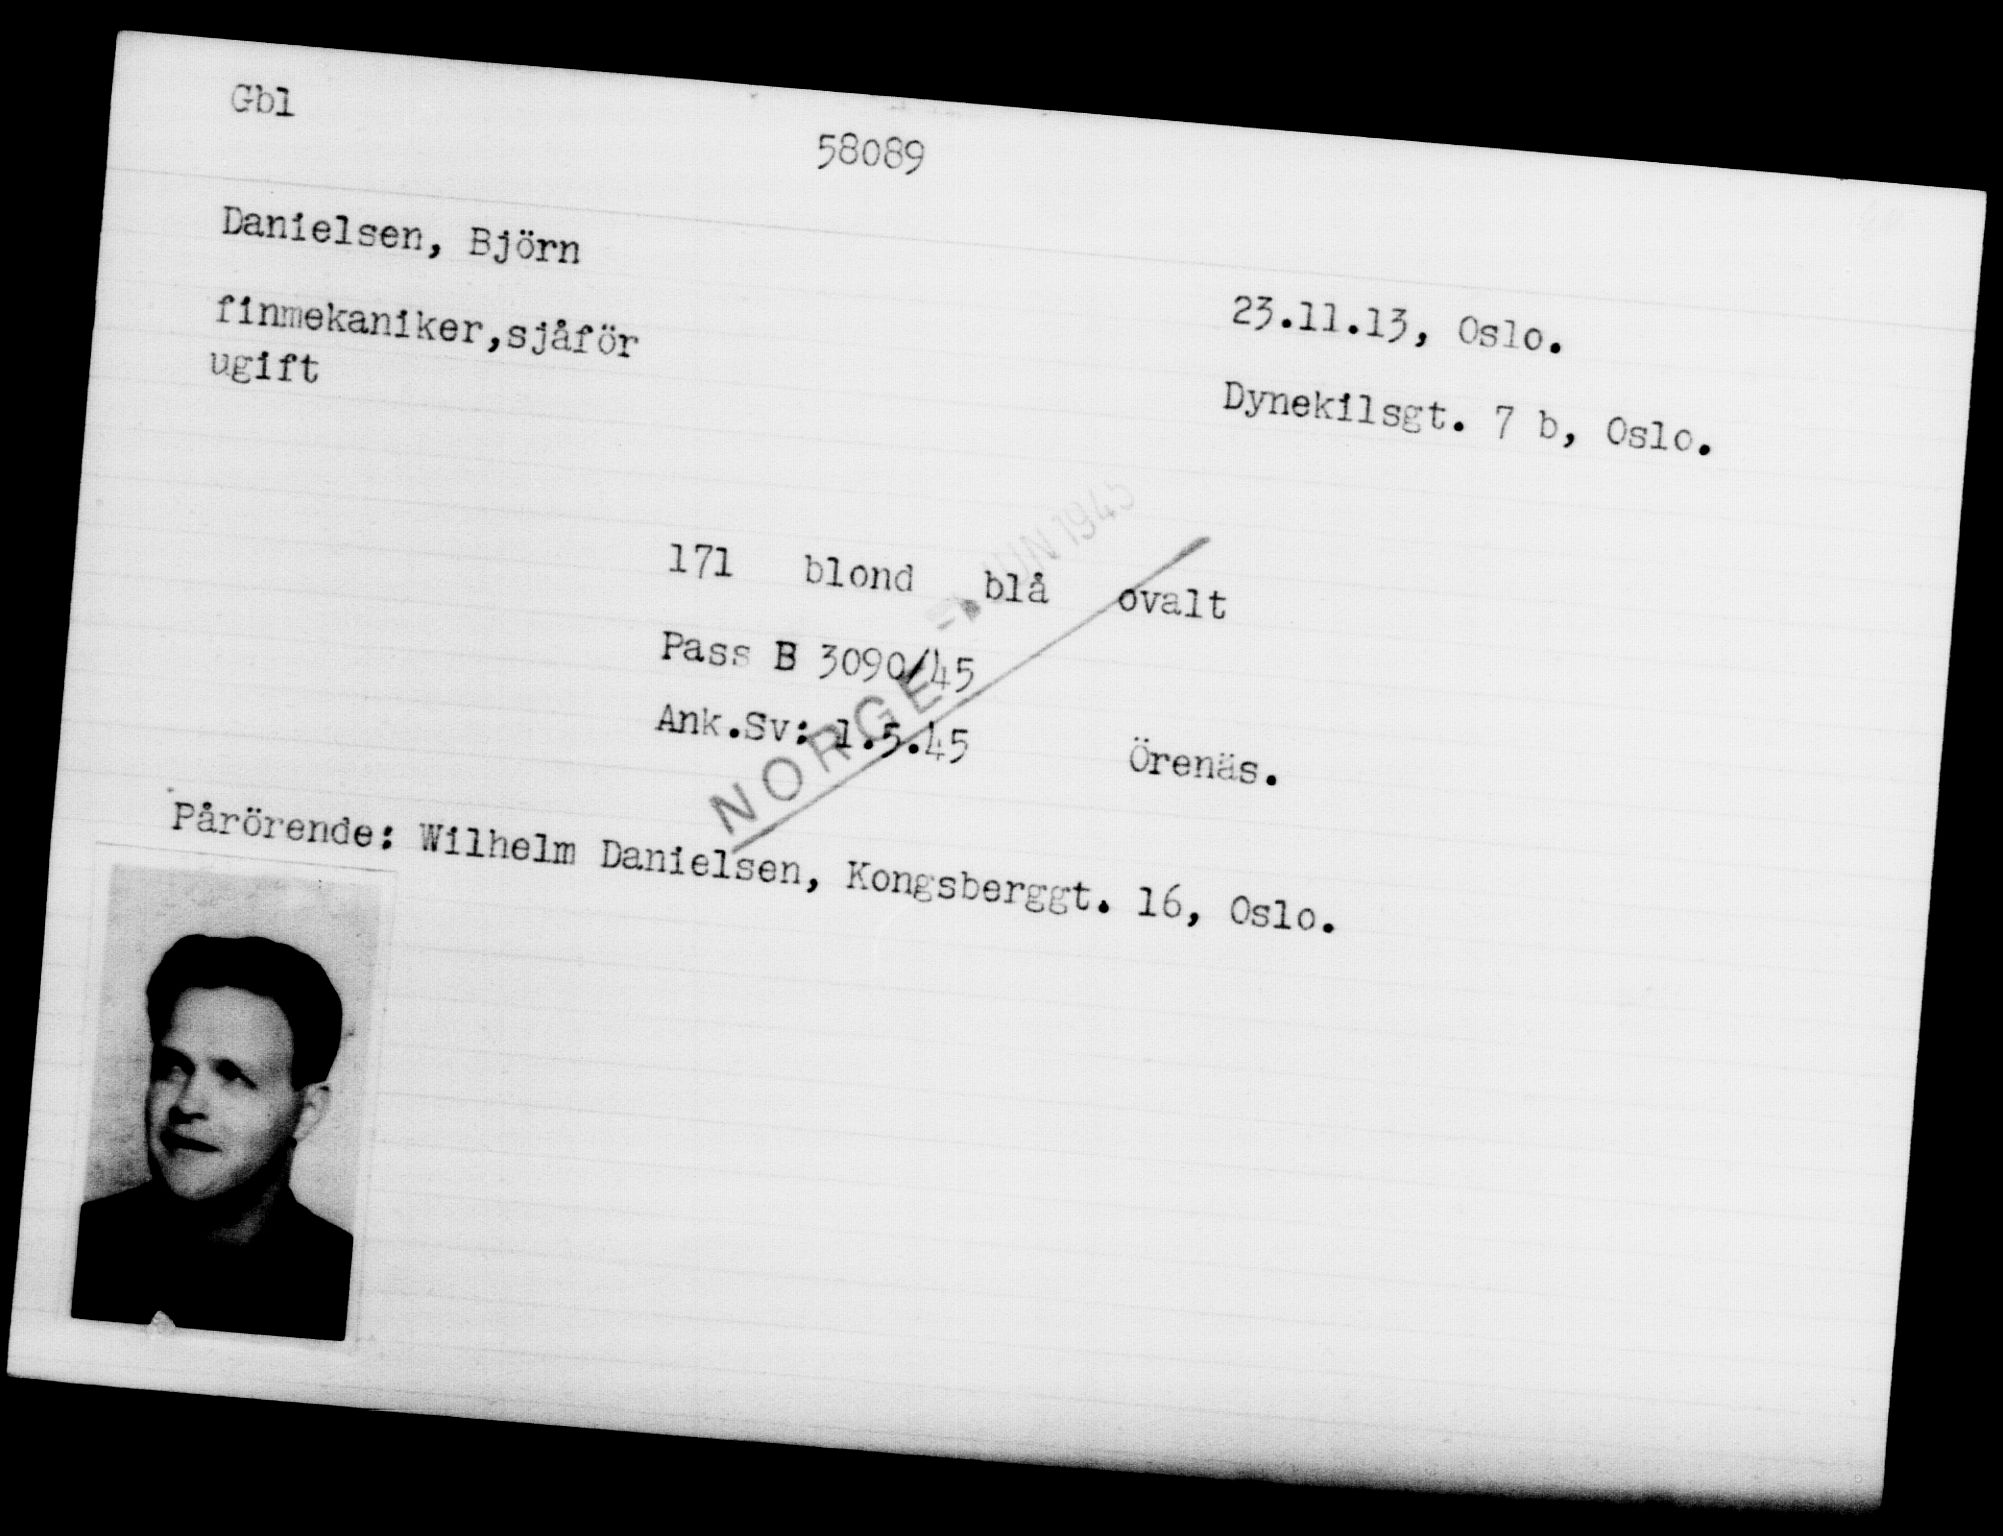 Gbl
58089
Danielsen, Björn
23.11.13, Oslo.
finmekaniker,sjåför
ugift
Dynekilsgt. 7 b, Oslo.
171 blond blå ovalt
Pass B 3090/45
Ank.Sv: 1.5.45 Örenäs.
NORGE JUN 1945
Pårörende: Wilhelm Danielsen, Kongsberggt. 16, Oslo.